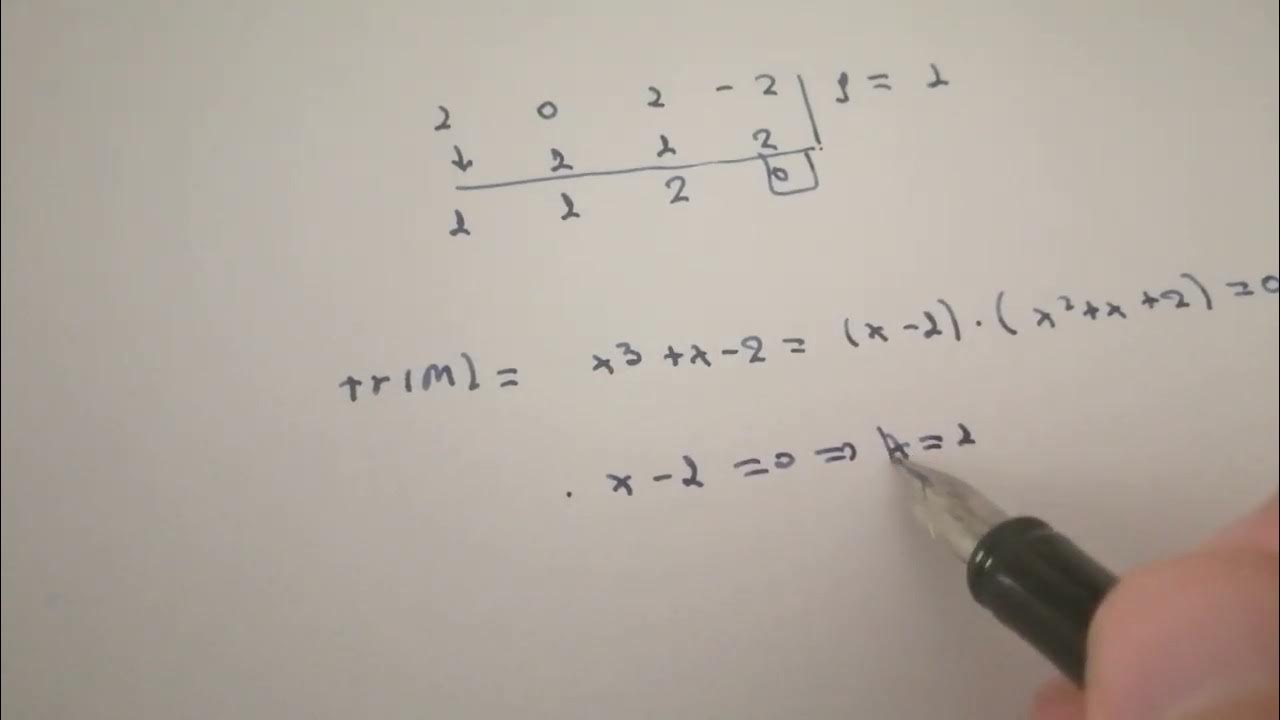 1 0 1 - 2 | ρ = 1
↓ 1 1 2
1 1 2 0
tr(M) = x³ + x - 2 = (x - 1) · (x² + x + 2) = 0
· x - 1 = 0 ⇒ x = 1